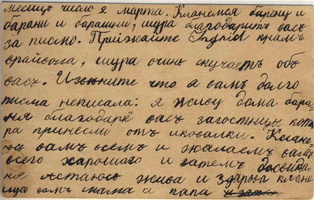 месяцъ число 2 марта. Кланемся барину и
барани и барашни, шура благодарит васъ
за письмо. Приѣжайте Ingrid къ намъ
, шура очинь скучаеть объ
васъ. Извените что я вамъ долго
писма неписала: я живу дома бара
ня благодаре васъ загостинцъ
ра принесли отъ иковалки. Клане
ца вамъ всемъ и жылаемъ вамъ
всего харошаго и затемъ досвида
не астаюсь жива и здарова кланы
ица вамъ мама и папа